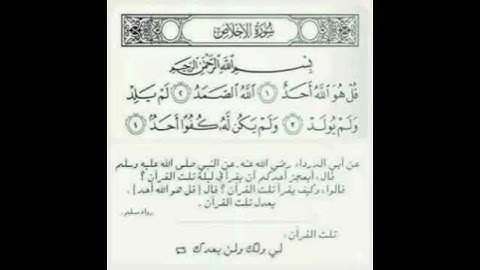 سُورَةُ الإِخْلَاصِ
بِسْمِ اللَّهِ الرَّحْمَٰنِ الرَّحِيمِ
قُلْ هُوَ اللَّهُ أَحَدٌ ۝١ اللَّهُ الصَّمَدُ ۝٢ لَمْ يَلِدْ
وَلَمْ يُولَدْ ۝٣ وَلَمْ يَكُن لَّهُ كُفُوًا أَحَدٌ ۝٤
عن أبي الدرداء رضي الله عنه، عن النبي صلى الله عليه وسلم
قال: أيعجز أحدكم أن يقرأ في ليلة ثلث القرآن ؟
قالوا: وكيف يقرأ ثلث القرآن ؟ قال (قل هو الله أحد) ،
يعدل ثلث القرآن .
رواه مسلم.
ثلث القرآن :
لي ولك ولمن بعدك